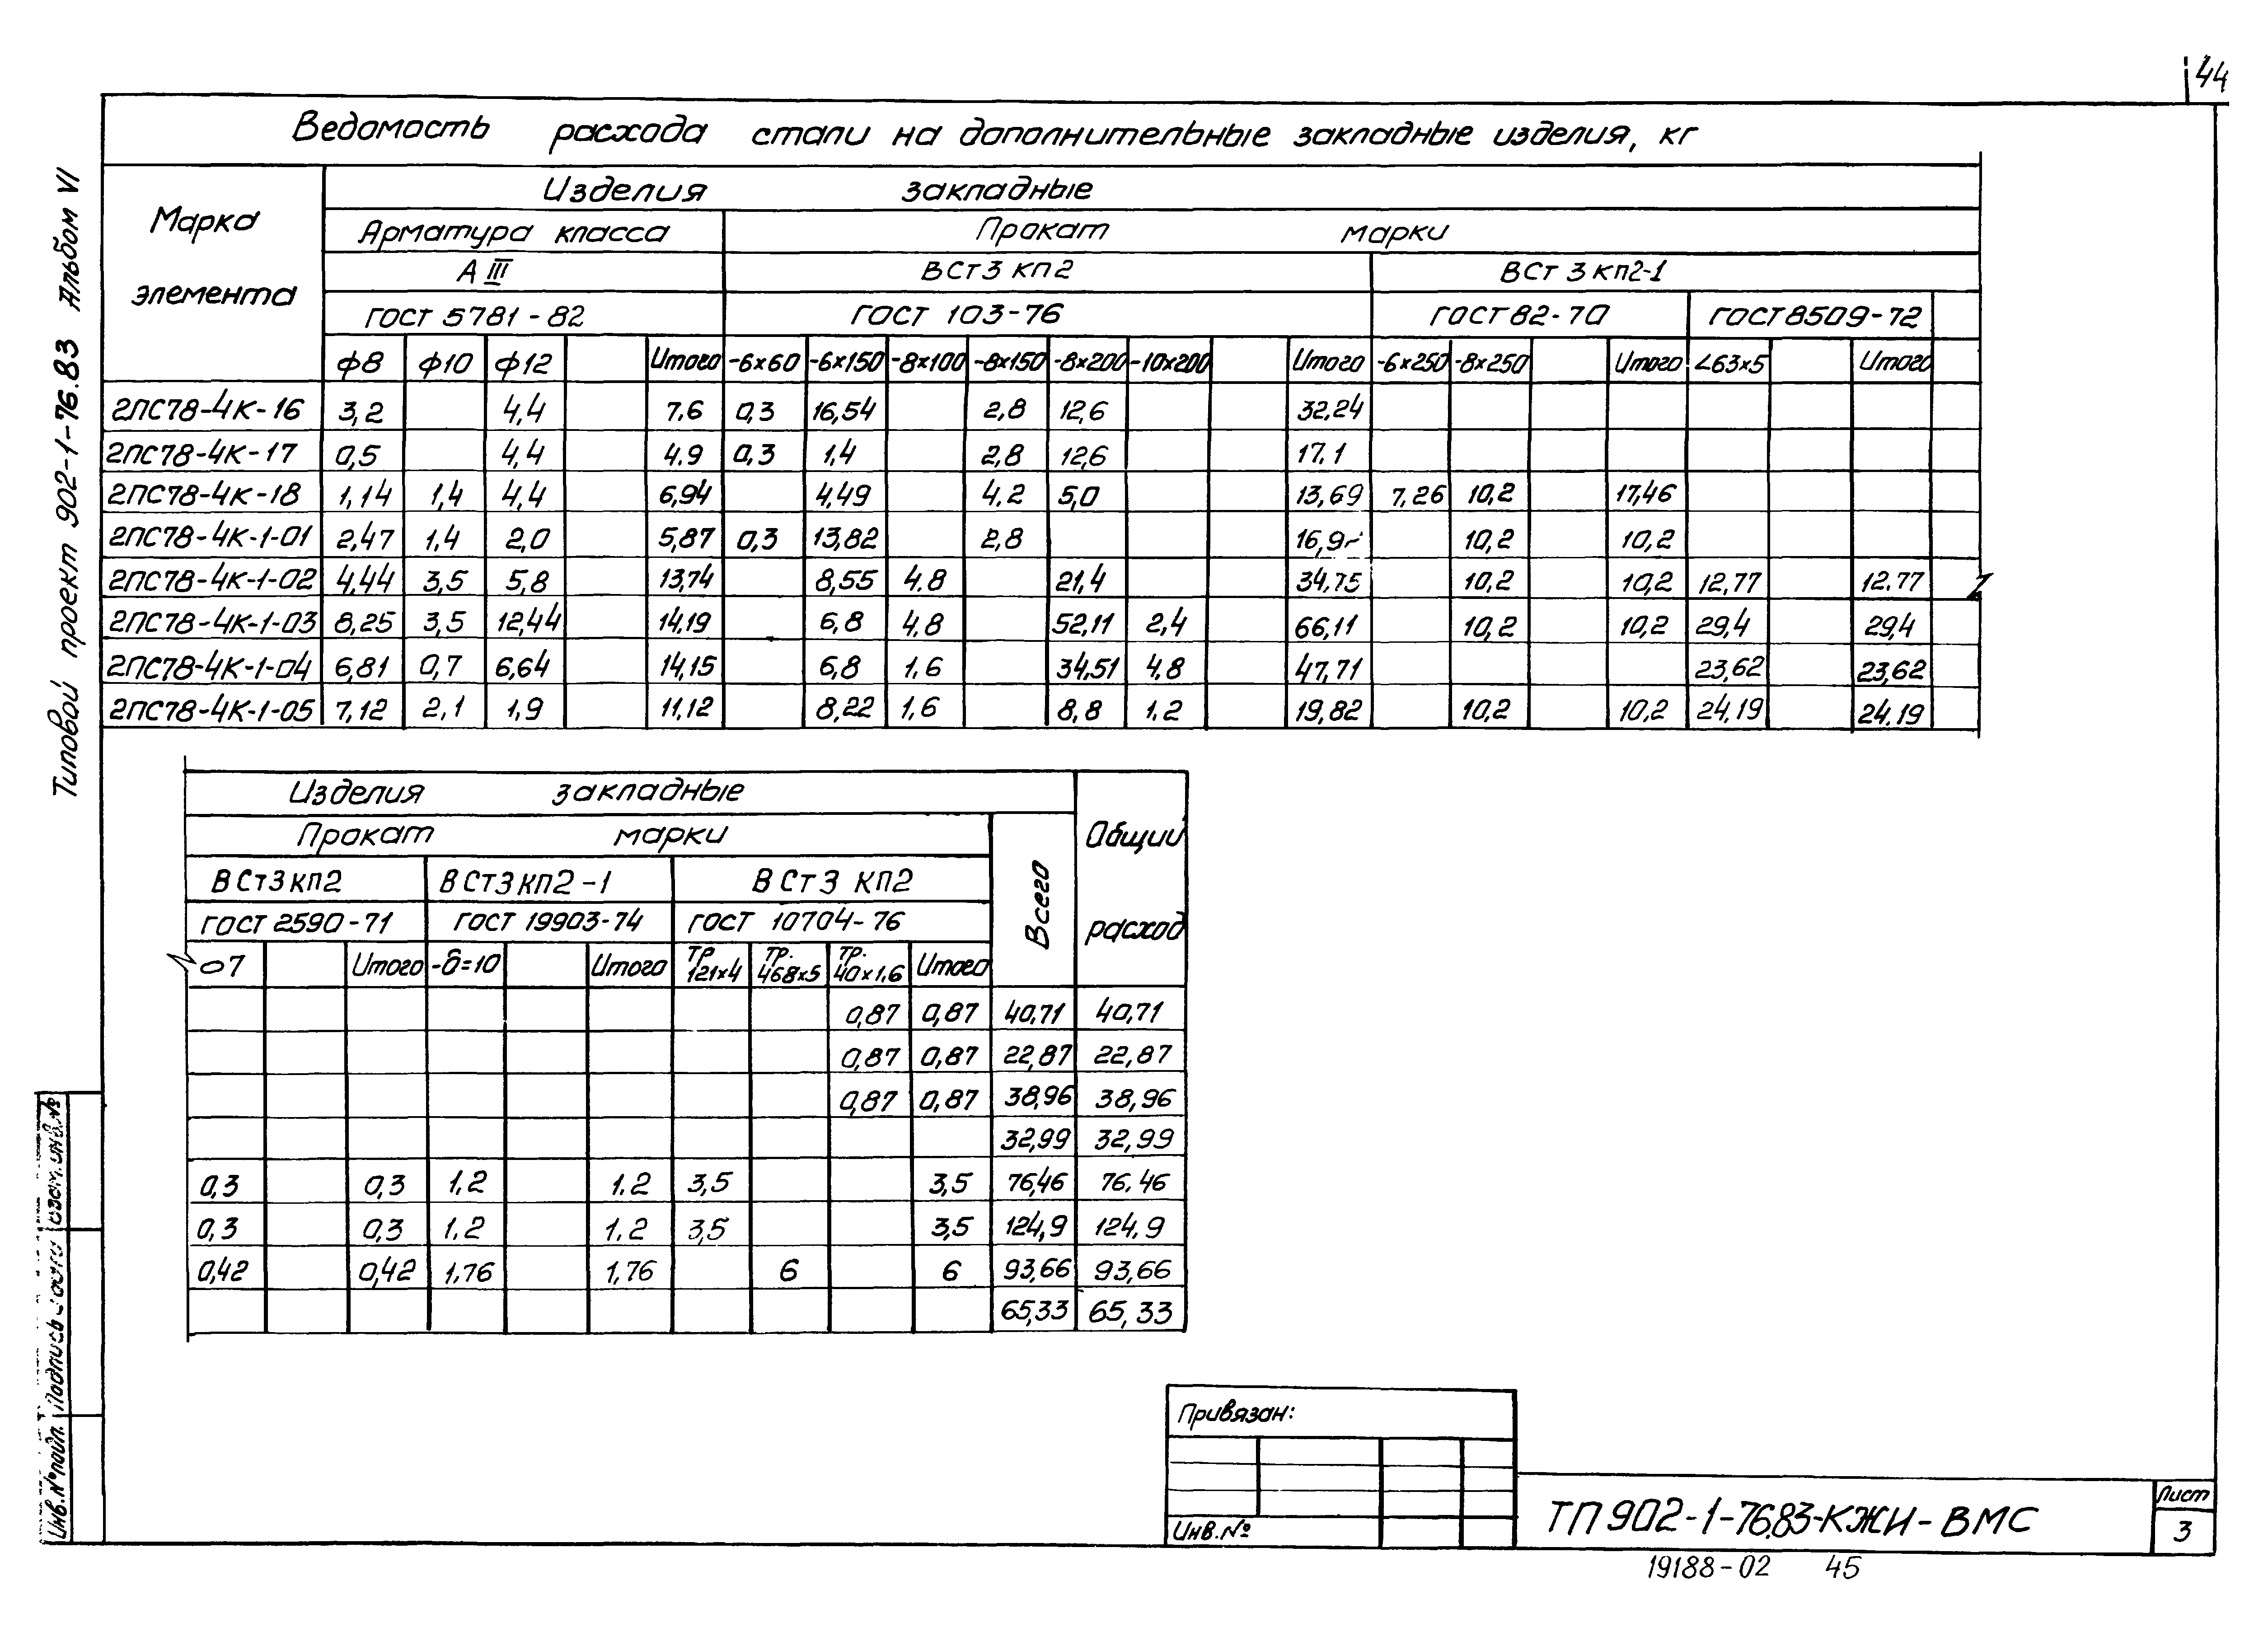 44
Ведомость расхода стали на дополнительные закладные изделия, кг
Марка элемента
Изделия закладные
Арматура класса Прокат марки
А III ВСт3 кп2 ВСт 3 кп2-1
ГОСТ 5781-82 ГОСТ 103-76 ГОСТ 82-70 ГОСТ 8509-72
ф8 ф10 ф12 Итого -6х60 -6х150 -8х100 -8х150 -8х200 -10х200 Итого -6х250 -8х250 Итого ∠63х5 Итого
2ПС78-4К-16 3,2 4,4 7,6 0,3 16,54 2,8 12,6 32,24
2ПС78-4К-17 0,5 4,4 4.9 0,3 1,4 2,8 12,6 17.1
2ПС78-4К-18 1,14 1,4 4,4 6,94 4,49 4,2 5,0 13,69 7,26 10,2 17,46
2ПС78-4К-1-01 2,47 1,4 2,0 5,87 0,3 13,82 2,8 10,2 10,2
2ПС78-4К-1-02 4,44 3,5 5,8 13,74 8,55 4.8 21,4 34,75 10,2 10,2 12.77 12.77
2ПС78-4К-1-03 8,25 3,5 12,44 14,19 6,8 4.8 52,11 2,4 66,11 10,2 10,2 29,4 29,4
2ПС78-4К-1-04 6,81 0,7 6,64 14,15 6,8 1.6 34,51 4,8 47,71 23,62 23,62
2ПС78-4К-1-05 7,12 2,1 1,9 11,12 8,22 1,6 8,8 1,2 19,82 10,2 10,2 24,19 24.19
Изделия закладные
Прокат марки Всего Общий расход
ВСт3кп2 ВСт3кп2-1 ВСт3 кп2
ГОСТ 2590-71 ГОСТ 19903-74 ГОСТ 10704-76
Итого -δ=10 Итого ТР 121х4 ТР. 468х5 ТР. 40х1,6 Итого
0,87 0,87 40,71 40,71
0,87 0,87 22,87 22,87
0,87 0,87 38,96 38,96
32,99 32,99
0,3 0,3 1.2 1.2 3,5 3,5 76,46 76.46
0,3 0,3 1.2 1.2 3,5 3,5 124,9 124,9
0,42 0,42 1,76 1,76 6 6 93,66 93,66
65,33 65,33
Привязан:
Инв.№
ТП 902-1-76.83-КЖИ-ВМС
Лист
3
19188-02 45
Типовой проект 902-1-76.83 Альбом VI
Инв.№подл.
Подпись
взам.инв.№